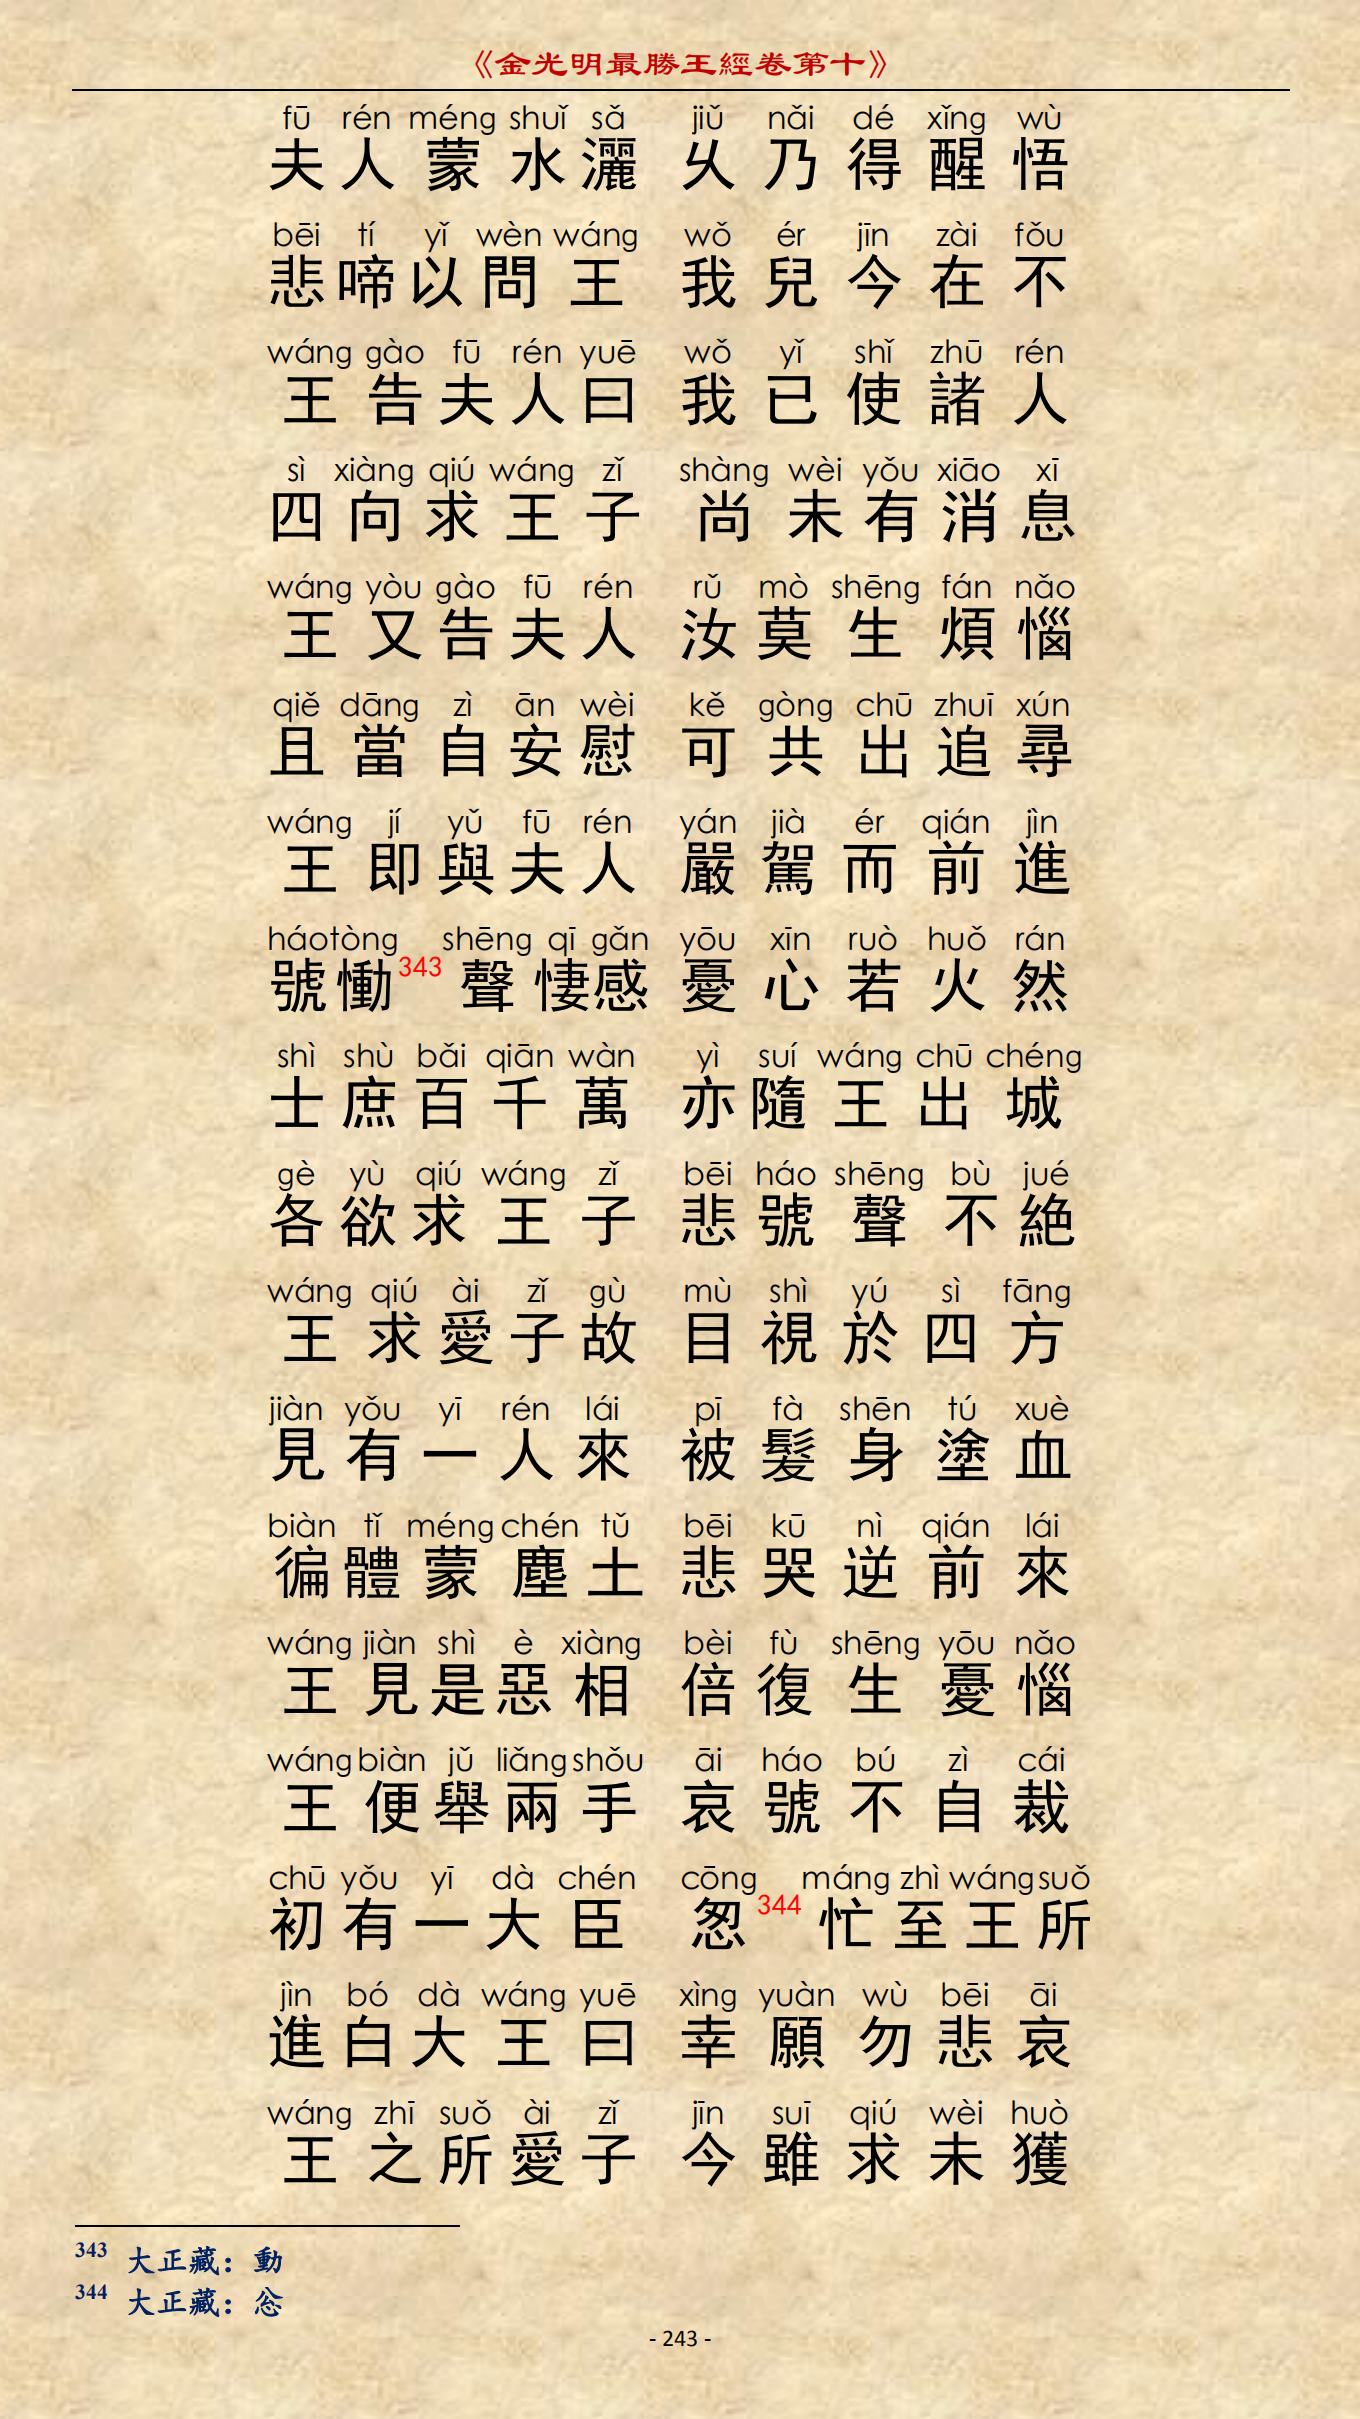 《金光明最勝王經卷第十》
fū rén méng shuǐ sǎ jiǔ nǎi dé xǐng wù
夫人蒙水灑 乆乃得醒悟
bēi tí yǐ wèn wáng wǒ ér jīn zài fǒu
悲啼以問王 我兒今在不
wáng gào fū rén yuē wǒ yǐ shǐ zhū rén
王告夫人曰 我已使諸人
sì xiàng qiú wáng zǐ shàng wèi yǒu xiāo xī
四向求王子 尚未有消息
wáng yòu gào fū rén rǔ mò shēng fán nǎo
王又告夫人 汝莫生煩惱
qiě dāng zì ān wèi kě gòng chū zhuī xún
且當自安慰 可共出追尋
wáng jí yǔ fū rén yán jià ér qián jìn
王即與夫人 嚴駕而前進
háotòng shēng qī gǎn yōu xīn ruò huǒ rán
號慟343聲悽感 憂心若火然
shì shù bǎi qiān wàn yì suí wáng chū chéng
士庶百千萬 亦隨王出城
gè yù qiú wáng zǐ bēi háo shēng bù jué
各欲求王子 悲號聲不絶
wáng qiú ài zǐ gù mù shì yú sì fāng
王求愛子故 目視於四方
jiàn yǒu yī rén lái pī fà shēn tú xuè
見有一人來 被髮身塗血
biàn tǐ méng chén tǔ bēi kū nì qián lái
徧體蒙塵土 悲哭逆前來
wáng jiàn shì è xiàng bèi fù shēng yōu nǎo
王見是惡相 倍復生憂惱
wáng biàn jǔ liǎng shǒu āi háo bú zì cái
王便舉兩手 哀號不自裁
chū yǒu yī dà chén cōng máng zhì wáng suǒ
初有一大臣 怱344忙至王所
jìn bó dà wáng yuē xìng yuàn wù bēi āi
進白大王曰 幸願勿悲哀
wáng zhī suǒ ài zǐ jīn suī qiú wèi huò
王之所愛子 今雖求未獲
343 大正藏：動
344 大正藏：忩
- 243 -